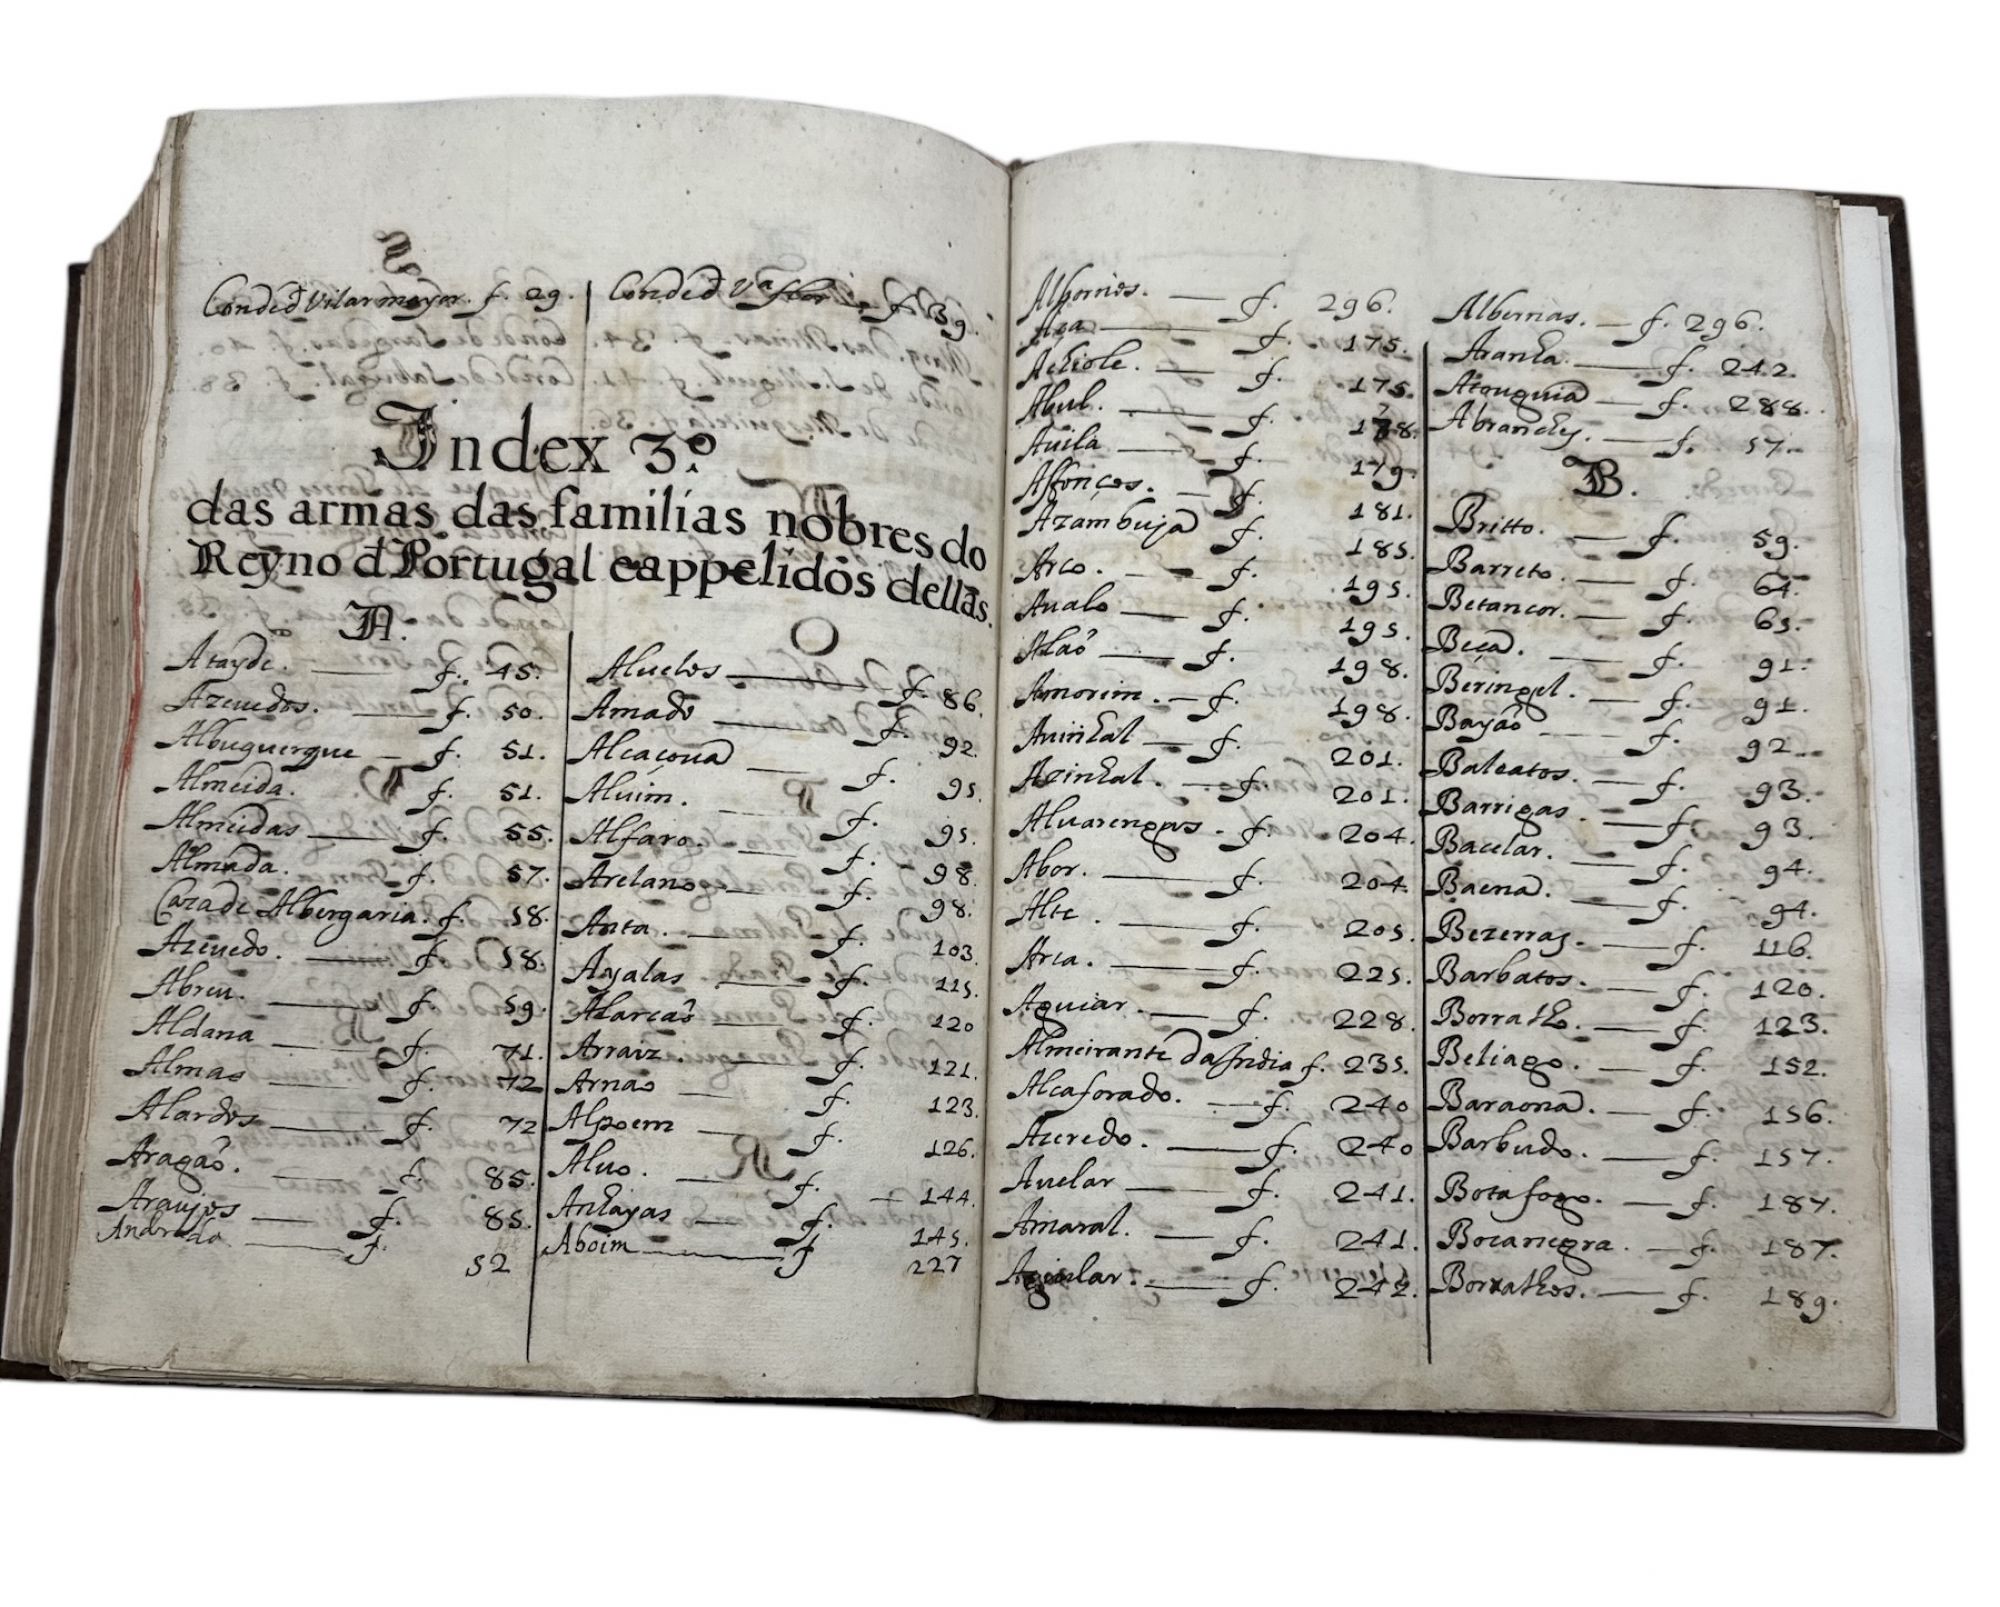 Conde đ Vilarmayor. f. 29.
Conde đ Vª flor f. 39.
Index 3º
das armas das familias nobres do
Reyno đ Portugal eappelidos dellas.
A.
Atayde. f. 45.
Azeuedos. f. 50.
Albuquerque f. 51.
Almeida. f. 51.
Almeidas f. 55.
Almada. f. 57.
Caza de Albergaria. f. 58.
Azeuedo. f. 58.
Abreu. f. 59.
Aldana f. 71.
Almas f. 72
Alardos f. 72
Aragaõ. f. 85.
Araujos f. 85.
Andrada f. 52
Aluelos f. 86.
Amado f. 92.
Alcaçoua f. 95.
Aluim. f. 95.
Alfaro. f. 98.
Arelano f. 98.
Anta. f. 103.
Ayalas f. 115.
Alarcaõ f. 120
Arraiz. f. 121.
Arnao f. 123.
Alpoem f. 126.
Aluo. f. 144.
Anhayas f. 145.
Aboim f 227
Albornos. f. 296.
Aça f. 175.
Achiole. f. 175.
Abul. f. 178.
Auila f. 179.
Affonços. f. 181.
Azambuja f. 185.
Arco. f. 195.
Aualo f. 195.
Alaõ f. 198.
Amorim. f. 198.
Auinhal f. 201.
Azinhal. f. 201.
Aluarengas. f. 204.
Abor. f. 204.
Alte. f. 205.
Arca. f. 225.
Aguiar. f. 228.
Almeirante da India f. 235.
Alcaforado. f. 240
Azeredo. f. 240
Auelar f. 241.
Amaral. f. 241.
Aguilar. f. 242.
Albernas. f. 296.
Aranha. f. 242.
Atouguia f. 288.
Abranches. f. 57.
B.
Britto. f. 59.
Barreto. f. 64.
Betancor. f. 65.
Beça. f. 91.
Beringel. f. 91.
Bayaõ f. 92
Baleatos. f. 93.
Barrigas f. 93.
Bacelar. f. 94.
Baena. f. 94.
Bezerras. f. 116.
Barbatos. f. 120.
Borralho. f. 123.
Beliago. f. 152.
Baraona. f. 156.
Barbudo. f. 157.
Botafogo. f. 187.
Bocanegra. f. 187.
Borralhos. f. 189.